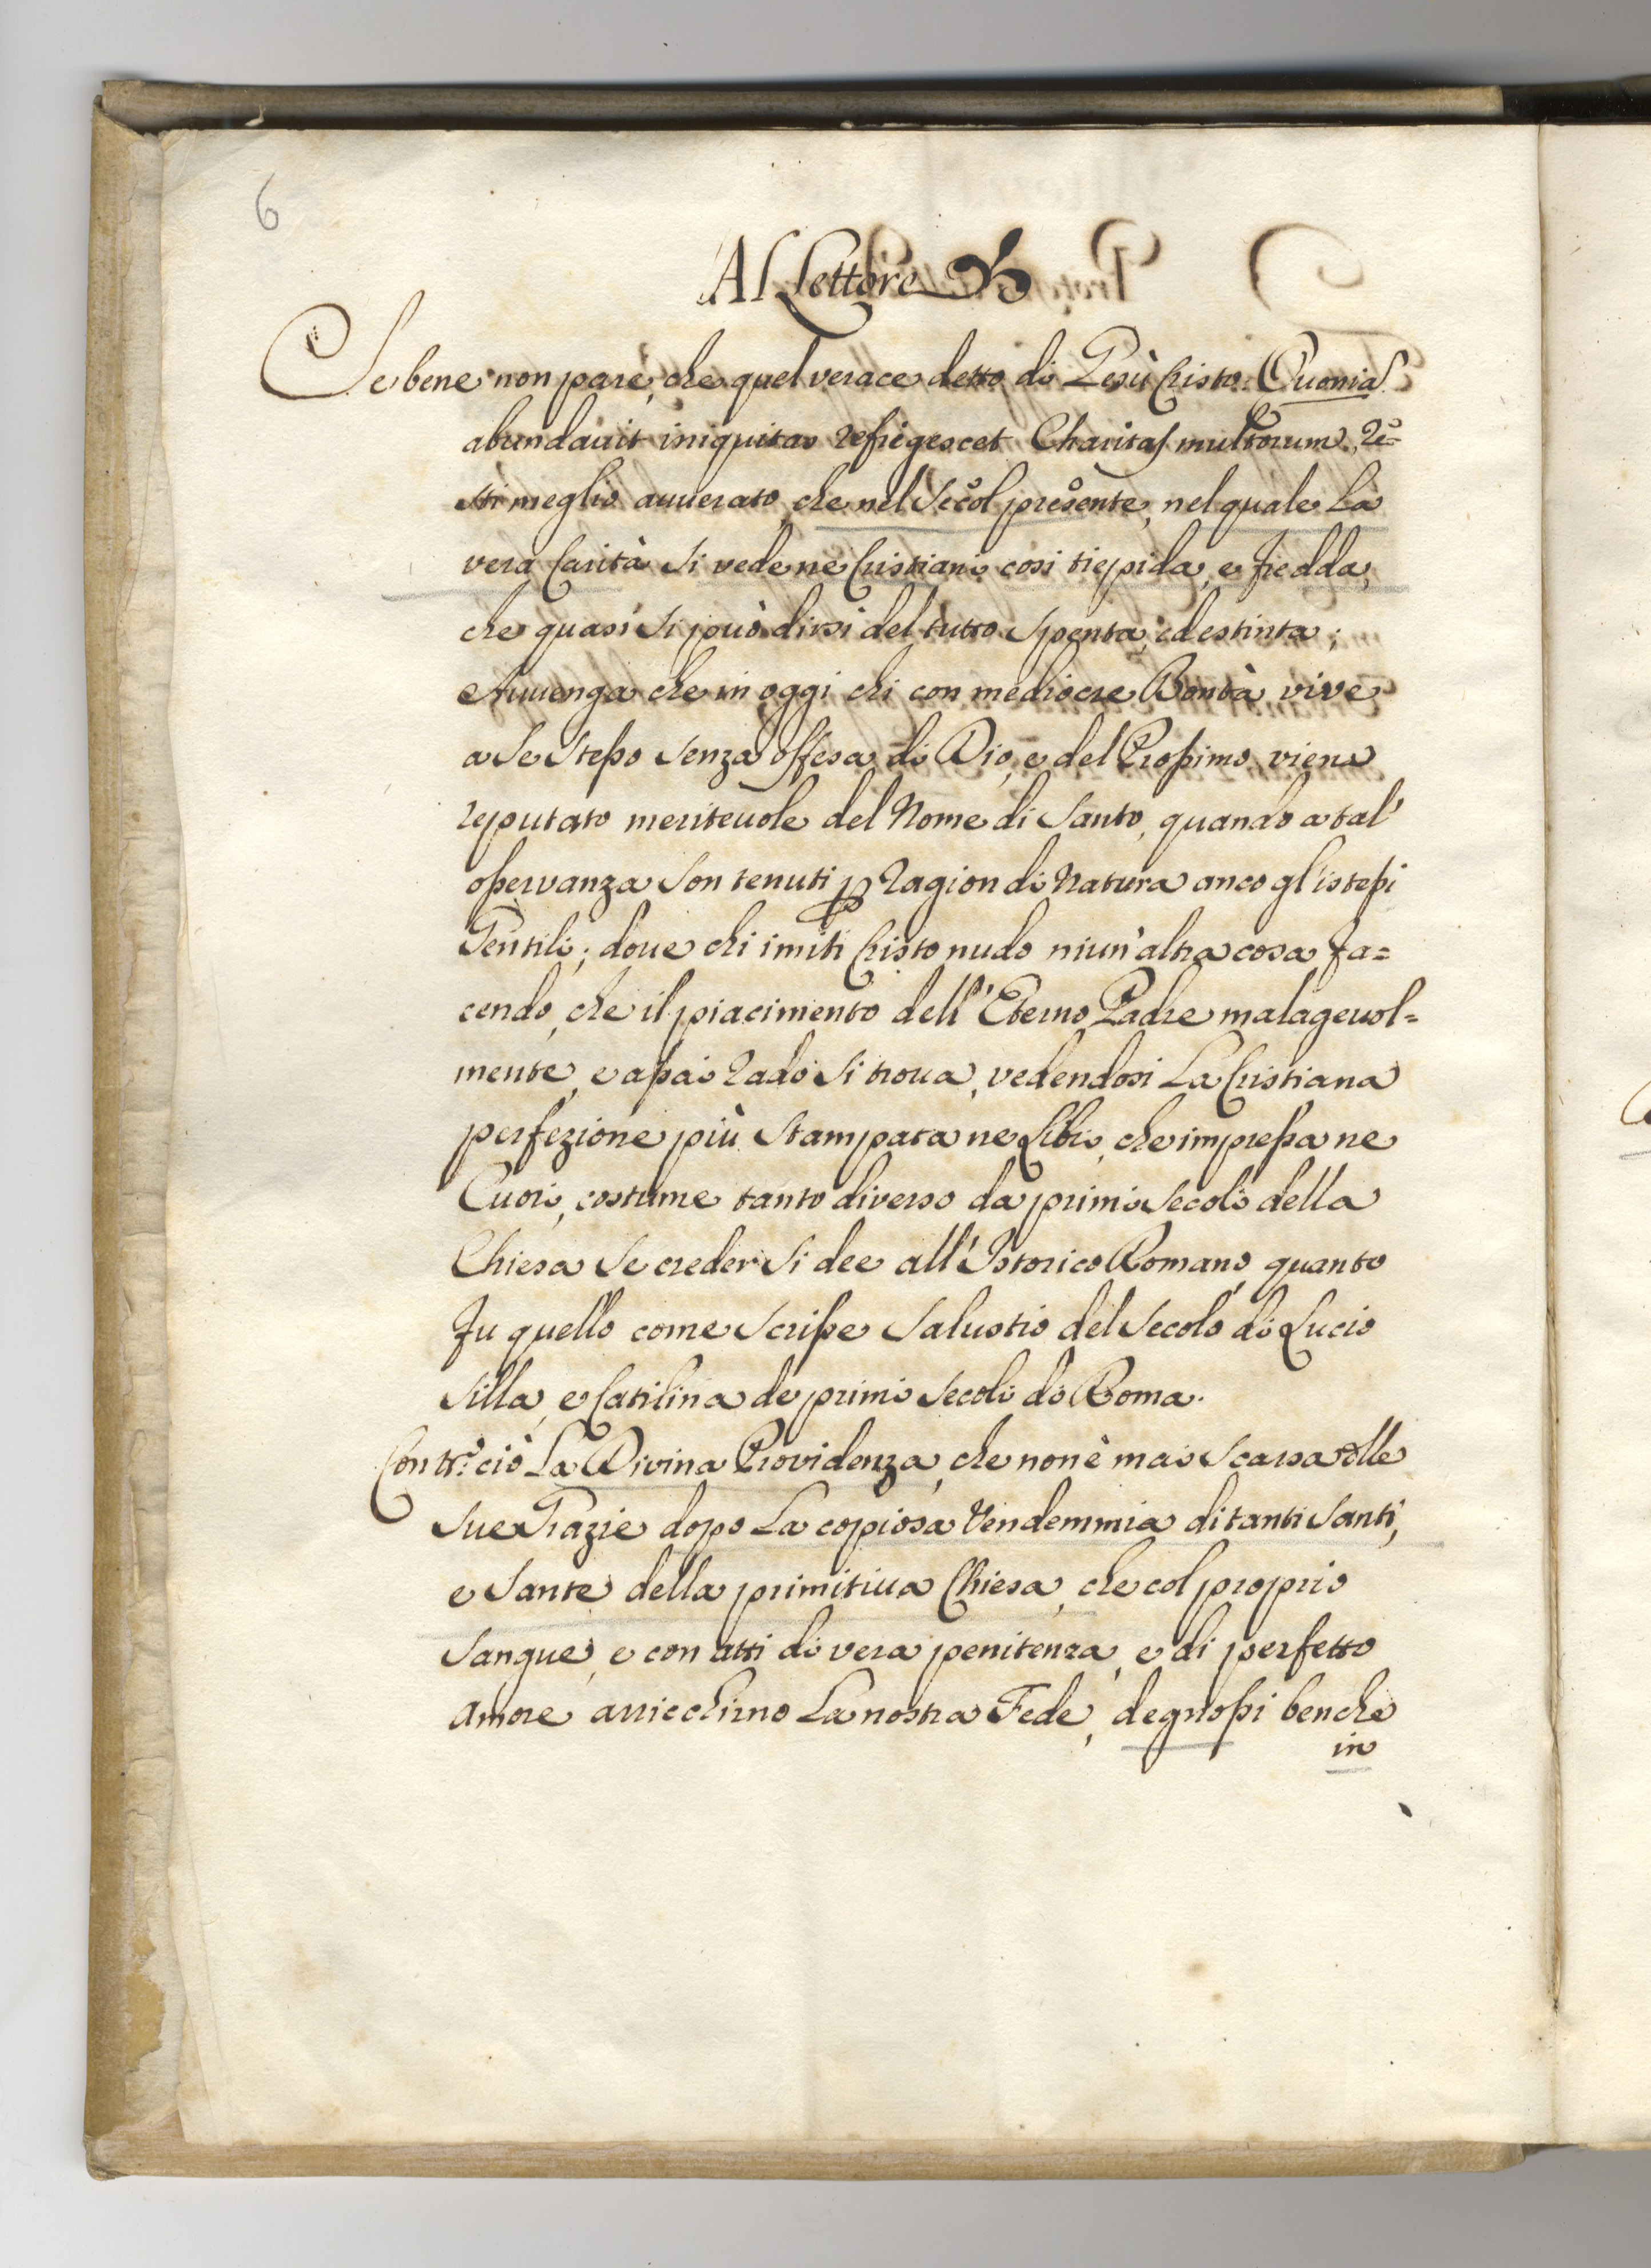 6
Al Lettore
Se bene non pare, che quel verace detto di Gesù Cristo: Quonia
abundauit iniquitas refrigescet Charitas multorum, re=
sti meglio auuerato, che nel Secol presente, nel quale La
vera Carità Si vede ne Cristiani così tiepida, e fredda,
che quasi Si può dirsi del tutto Spenta, ed estinta;
Auuenga che in oggi chi con mediocre Bontà vive
a Se Stesso Senza offesa di Dio, e del Prossimo, viene
reputato meriteuole del Nome di Santo, quando a tal'
osservanza Son tenuti p Ragion di Natura anco gl'istessi
Gentili; doue chi imiti Cristo nudo niun'altra cosa fa=
cendo, che il piacimento dell'Eterno Padre malageuol=
mente, e assai rado Si troua, vedendosi La Cristiana
perfezione più Stampata ne Libri, che impressa ne
Cuori, costume tanto diverso da primi Secoli della
Chiesa Se creder Si dee all'Istorico Romano, quanto
fu quello come Scrisse Salustio del Secolo di Lucio
Silla, e Catilina de primi Secoli di Roma.
Con tt.º ciò La Divina Providenza, che non è mai Scarsa dlle
Sue Grazie dopo La copiosa Vendemmia di tanti Santi,
e Sante della primitiua Chiesa, che col proprio
Sangue, e con atti di vera penitenza, e di perfetto
Amore arricchirno La nostra Fede, degnossi benche
in